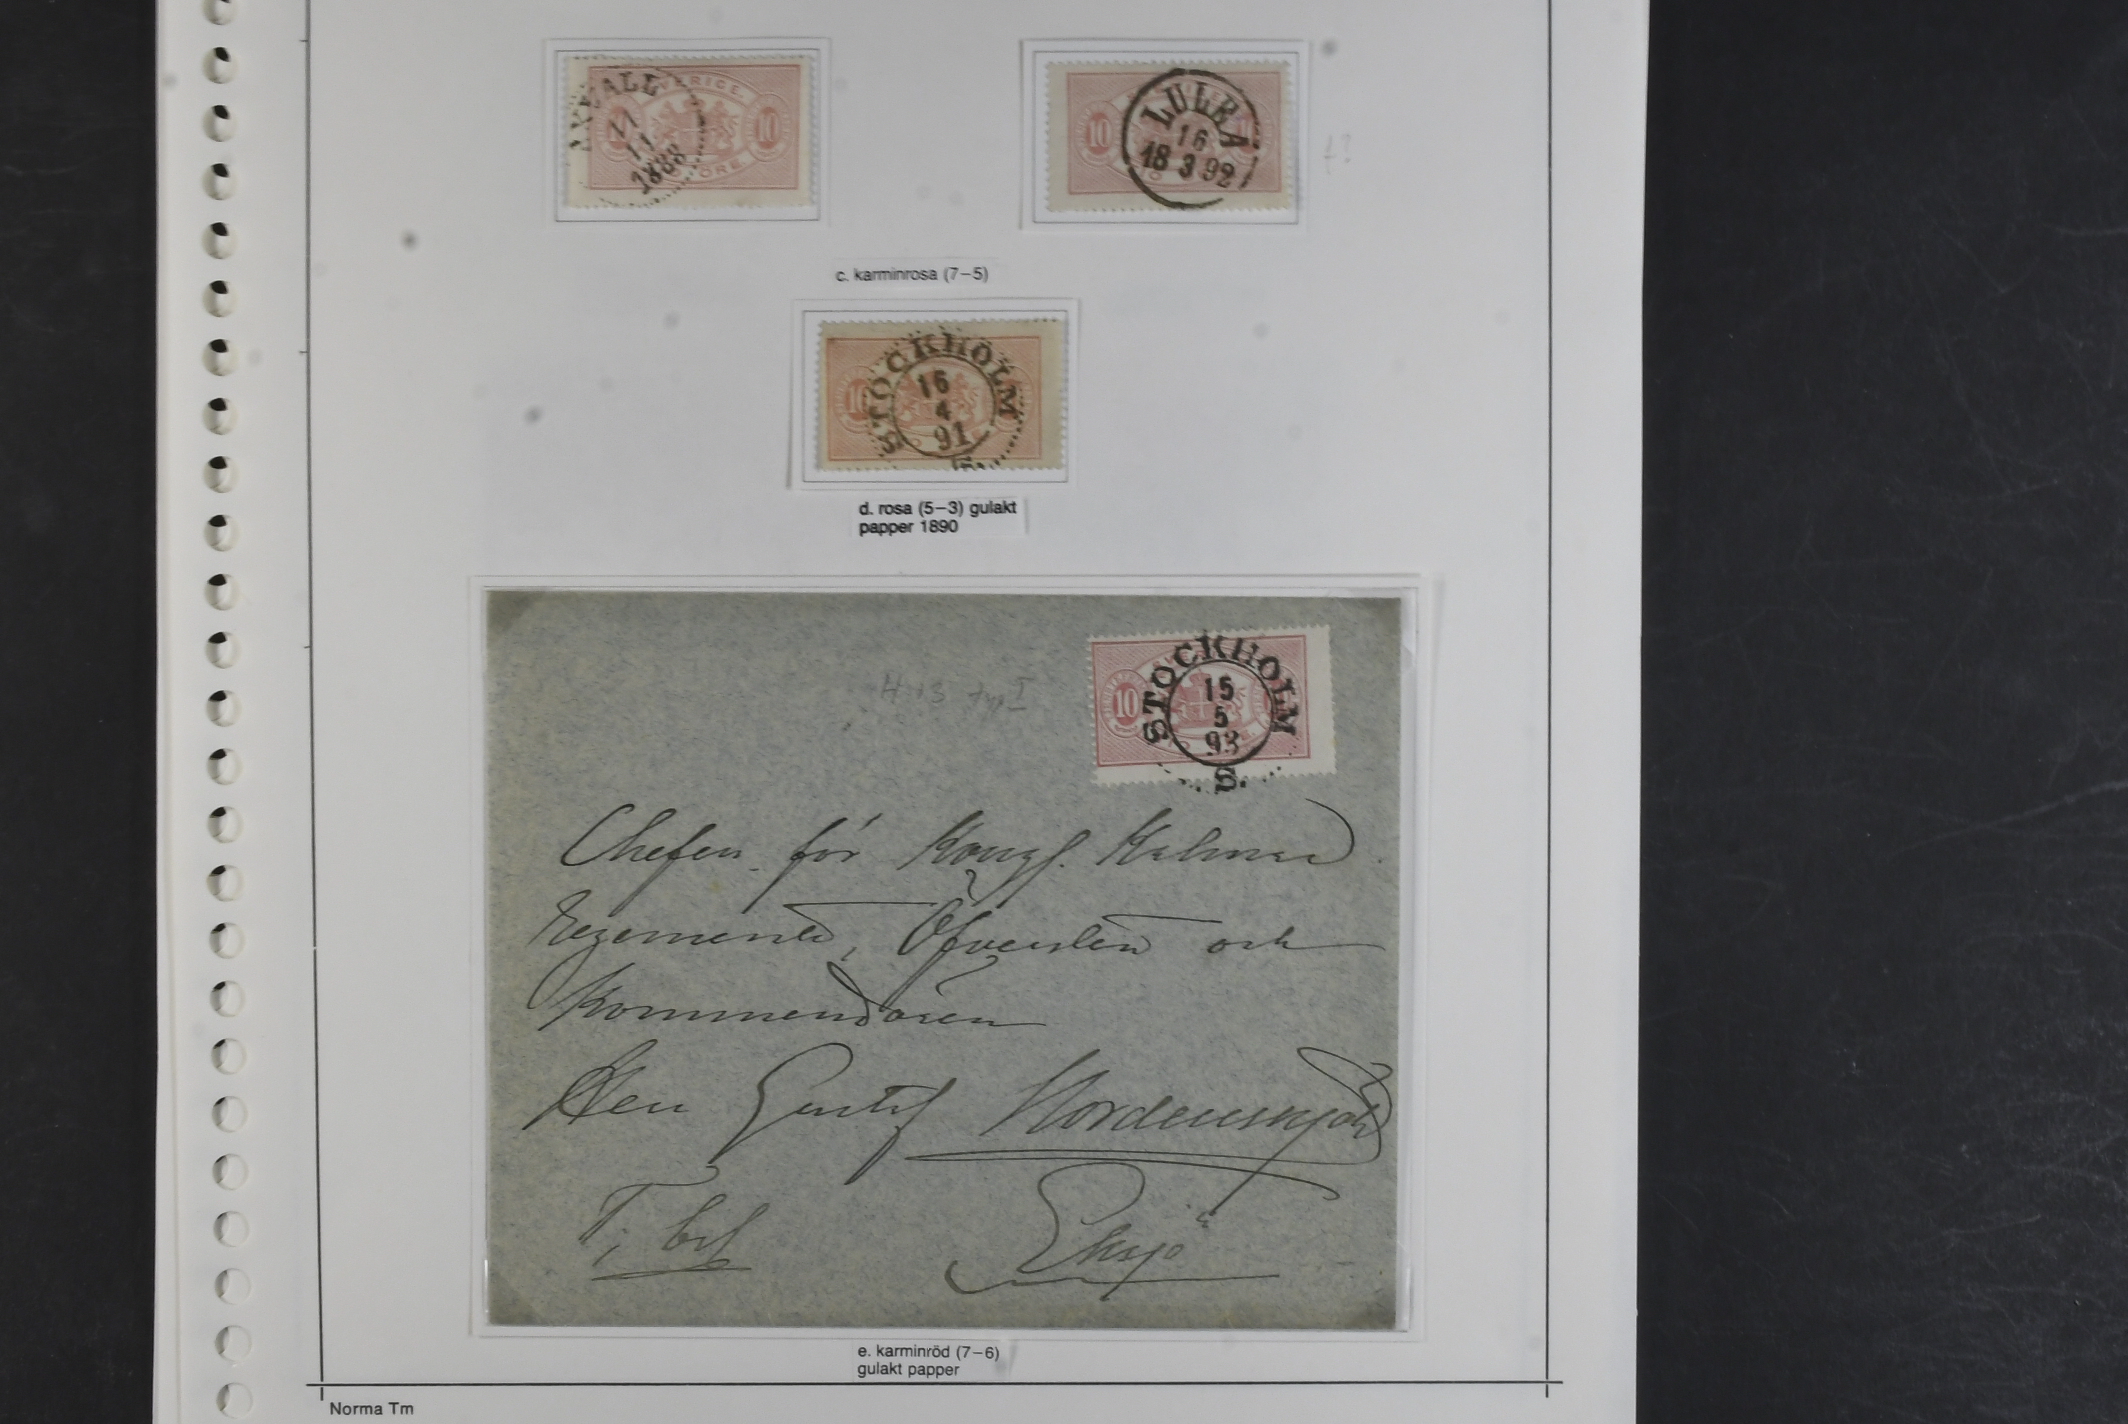 AXVALL
11
11
1888
SVERIGE.
10
ÖRE.
LULEÅ
16
18 3 92
10
c. karminrosa (7–5)
STOCKHOLM
16
4
91
10
d. rosa (5–3) gulakt
papper 1890
typ I
STOCKHOLM
15
5
93
S.
10
Chefen för Kongl. Kalmar
Regemente, Öfversten och
Kommendören
Herr Gustf Nordenskjöld
T. bref
Eksjö
e. karminröd (7–6)
gulakt papper
Norma Tm